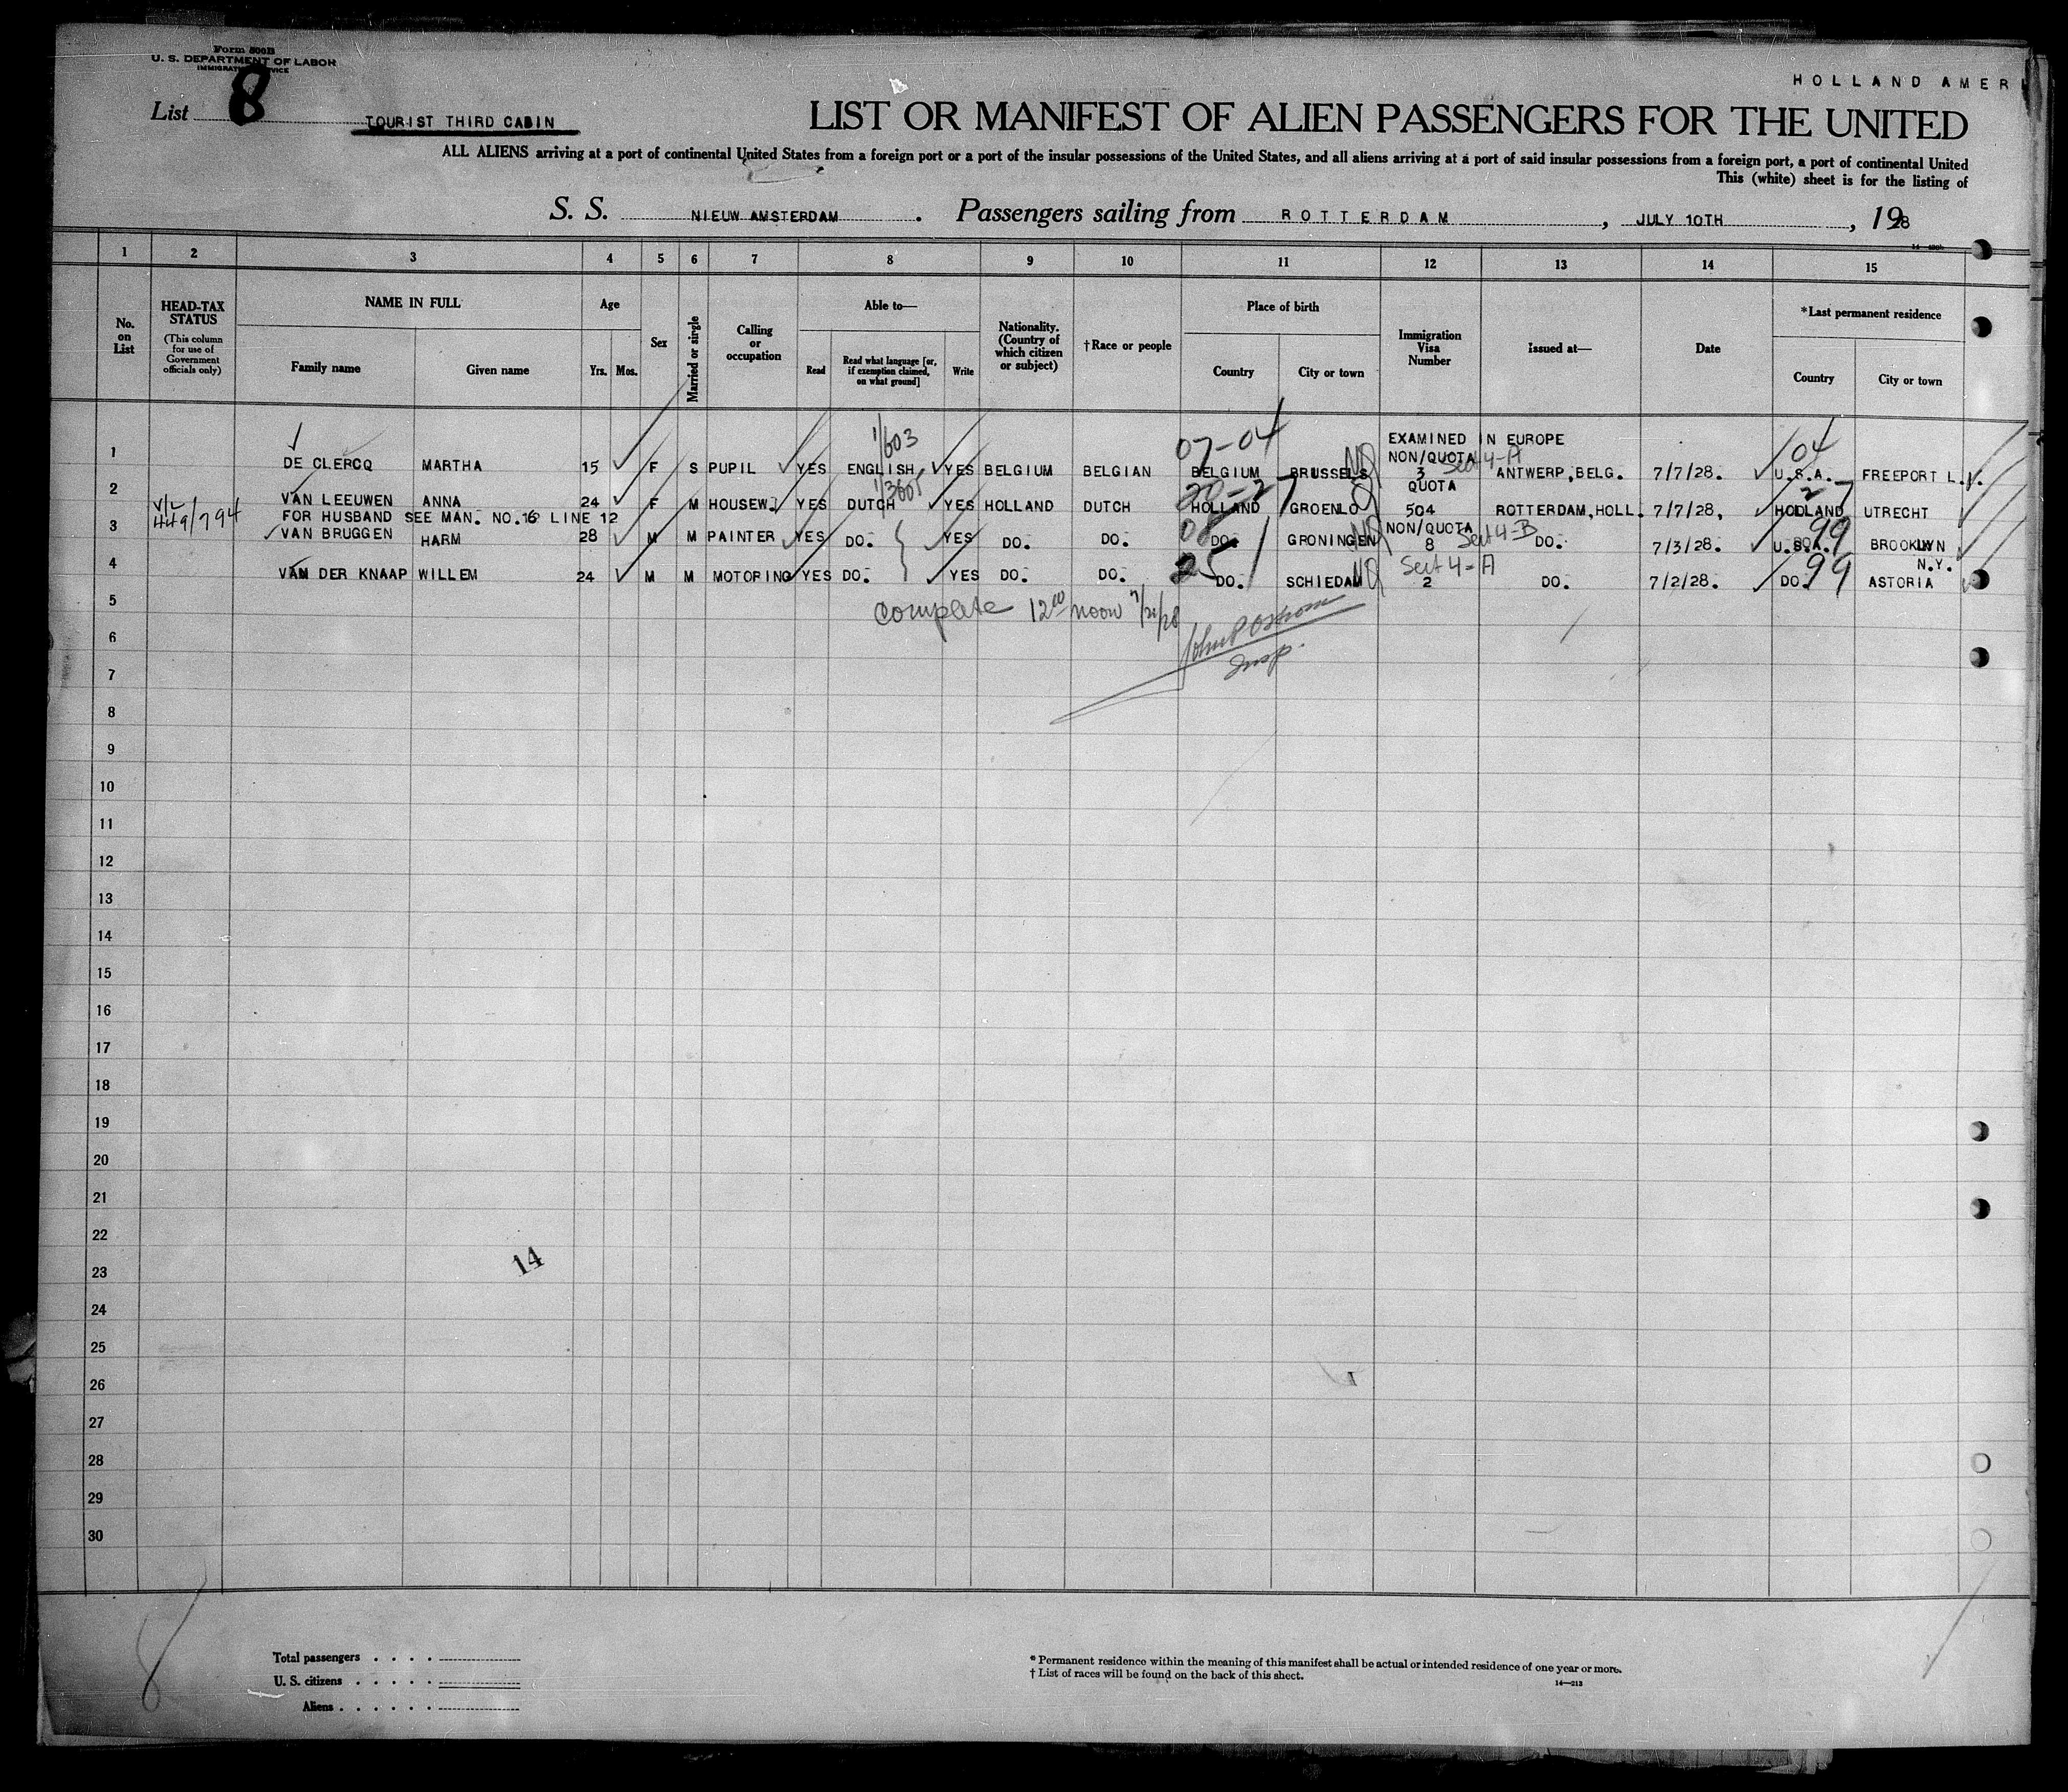 Form 500B
U. S. DEPARTMENT OF LABOR
HOLLAND AMER
List 8
TOURIST THIRD CABIN
LIST OR MANIFEST OF ALIEN PASSENGERS FOR THE UNITED
ALL ALIENS arriving at a port of continental United States from a foreign port or a port of the insular possessions of the United States, and all aliens arriving at a port of said insular possessions from a foreign port, a port of continental United
This (white) sheet is for the listing of
S. S. NIEUW AMSTERDAM . Passengers sailing from ROTTERDAM , JULY 10TH , 1928
1 2 3 4 5 6 7 8 9 10 11 12 13 14 15
No. on List
HEAD-TAX STATUS
(This column for use of Government officials only)
NAME IN FULL
Family name Given name
Age
Yrs. Mos.
Sex
Married or single
Calling or occupation
Able to—
Read
Read what language [or, if exemption claimed, on what ground]
Write
Nationality. (Country of which citizen or subject)
†Race or people
Place of birth
Country City or town
Immigration Visa Number
Issued at—
Date
*Last permanent residence
Country City or town
1/603 07-04 EXAMINED IN EUROPE 04
NON/QUOTA Sect 4-A
1 DE CLERCQ MARTHA 15 F S PUPIL YES ENGLISH YES BELGIUM BELGIAN BELGIUM BRUSSELS 3 ANTWERP,BELG. 7/7/28. U.S.A. FREEPORT L.I.
20-27 QUOTA 27
2 VAN LEEUWEN ANNA 24 F M HOUSEW. YES DUTCH YES HOLLAND DUTCH HOLLAND GROENLO 504 ROTTERDAM,HOLL. 7/7/28, HOLLAND UTRECHT
449/794 FOR HUSBAND SEE MAN. NO.16 LINE 12
NON/QUOTA Sect 4-B 99
3 VAN BRUGGEN HARM 28 M M PAINTER YES DO. YES DO. DO. DO. GRONINGEN 8 DO. 7/3/28. U.S.A. BROOKLYN
N.Y.
25 Sect 4-A 99
4 VAN DER KNAAP WILLEM 24 M M MOTORING YES DO. YES DO. DO. DO. SCHIEDAM 2 DO. 7/2/28. DO. ASTORIA
5
Complete 12 00 noon 7/21/28
6
Insp.
7
8
9
10
11
12
13
14
15
16
17
18
19
20
21
22
14
23
24
25
26
27
28
29
30
8
Total passengers
U. S. citizens
Aliens
* Permanent residence within the meaning of this manifest shall be actual or intended residence of one year or more.
† List of races will be found on the back of this sheet.
14—213